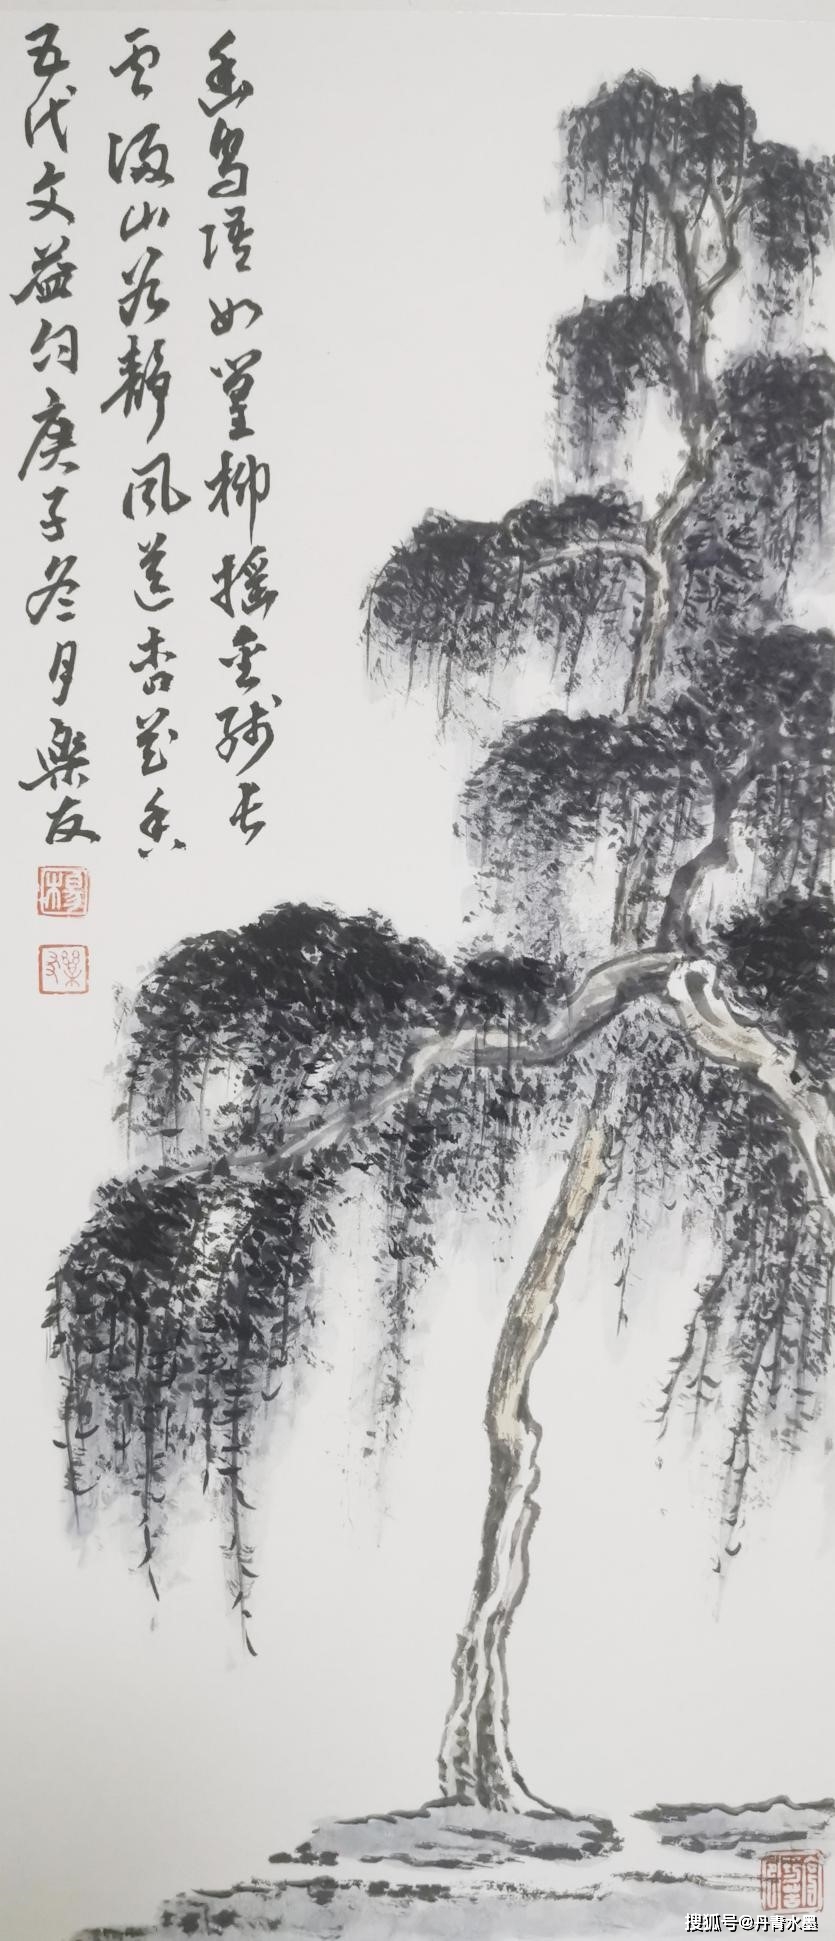 幽鸟语如篁柳摇金线长
云归山谷静风送杏花香
五代文益句庚子冬月樂友
樂友
搜狐号@丹青水墨